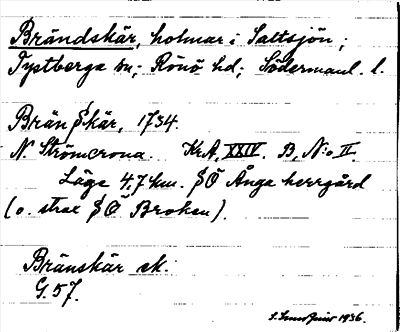 Brändskär, holmar i Saltsjön;
Tystberga sn; Rönö hd; Södermanl. l.
Brän§kär, 1734.
N. Strömcrona. KrA, XXIV. B, N:o II.
Läge 4,7 km. SÖ Ånga herrgård
(o. strax SÖ Broken).
Bränskär ek.
G. 57.
1936.